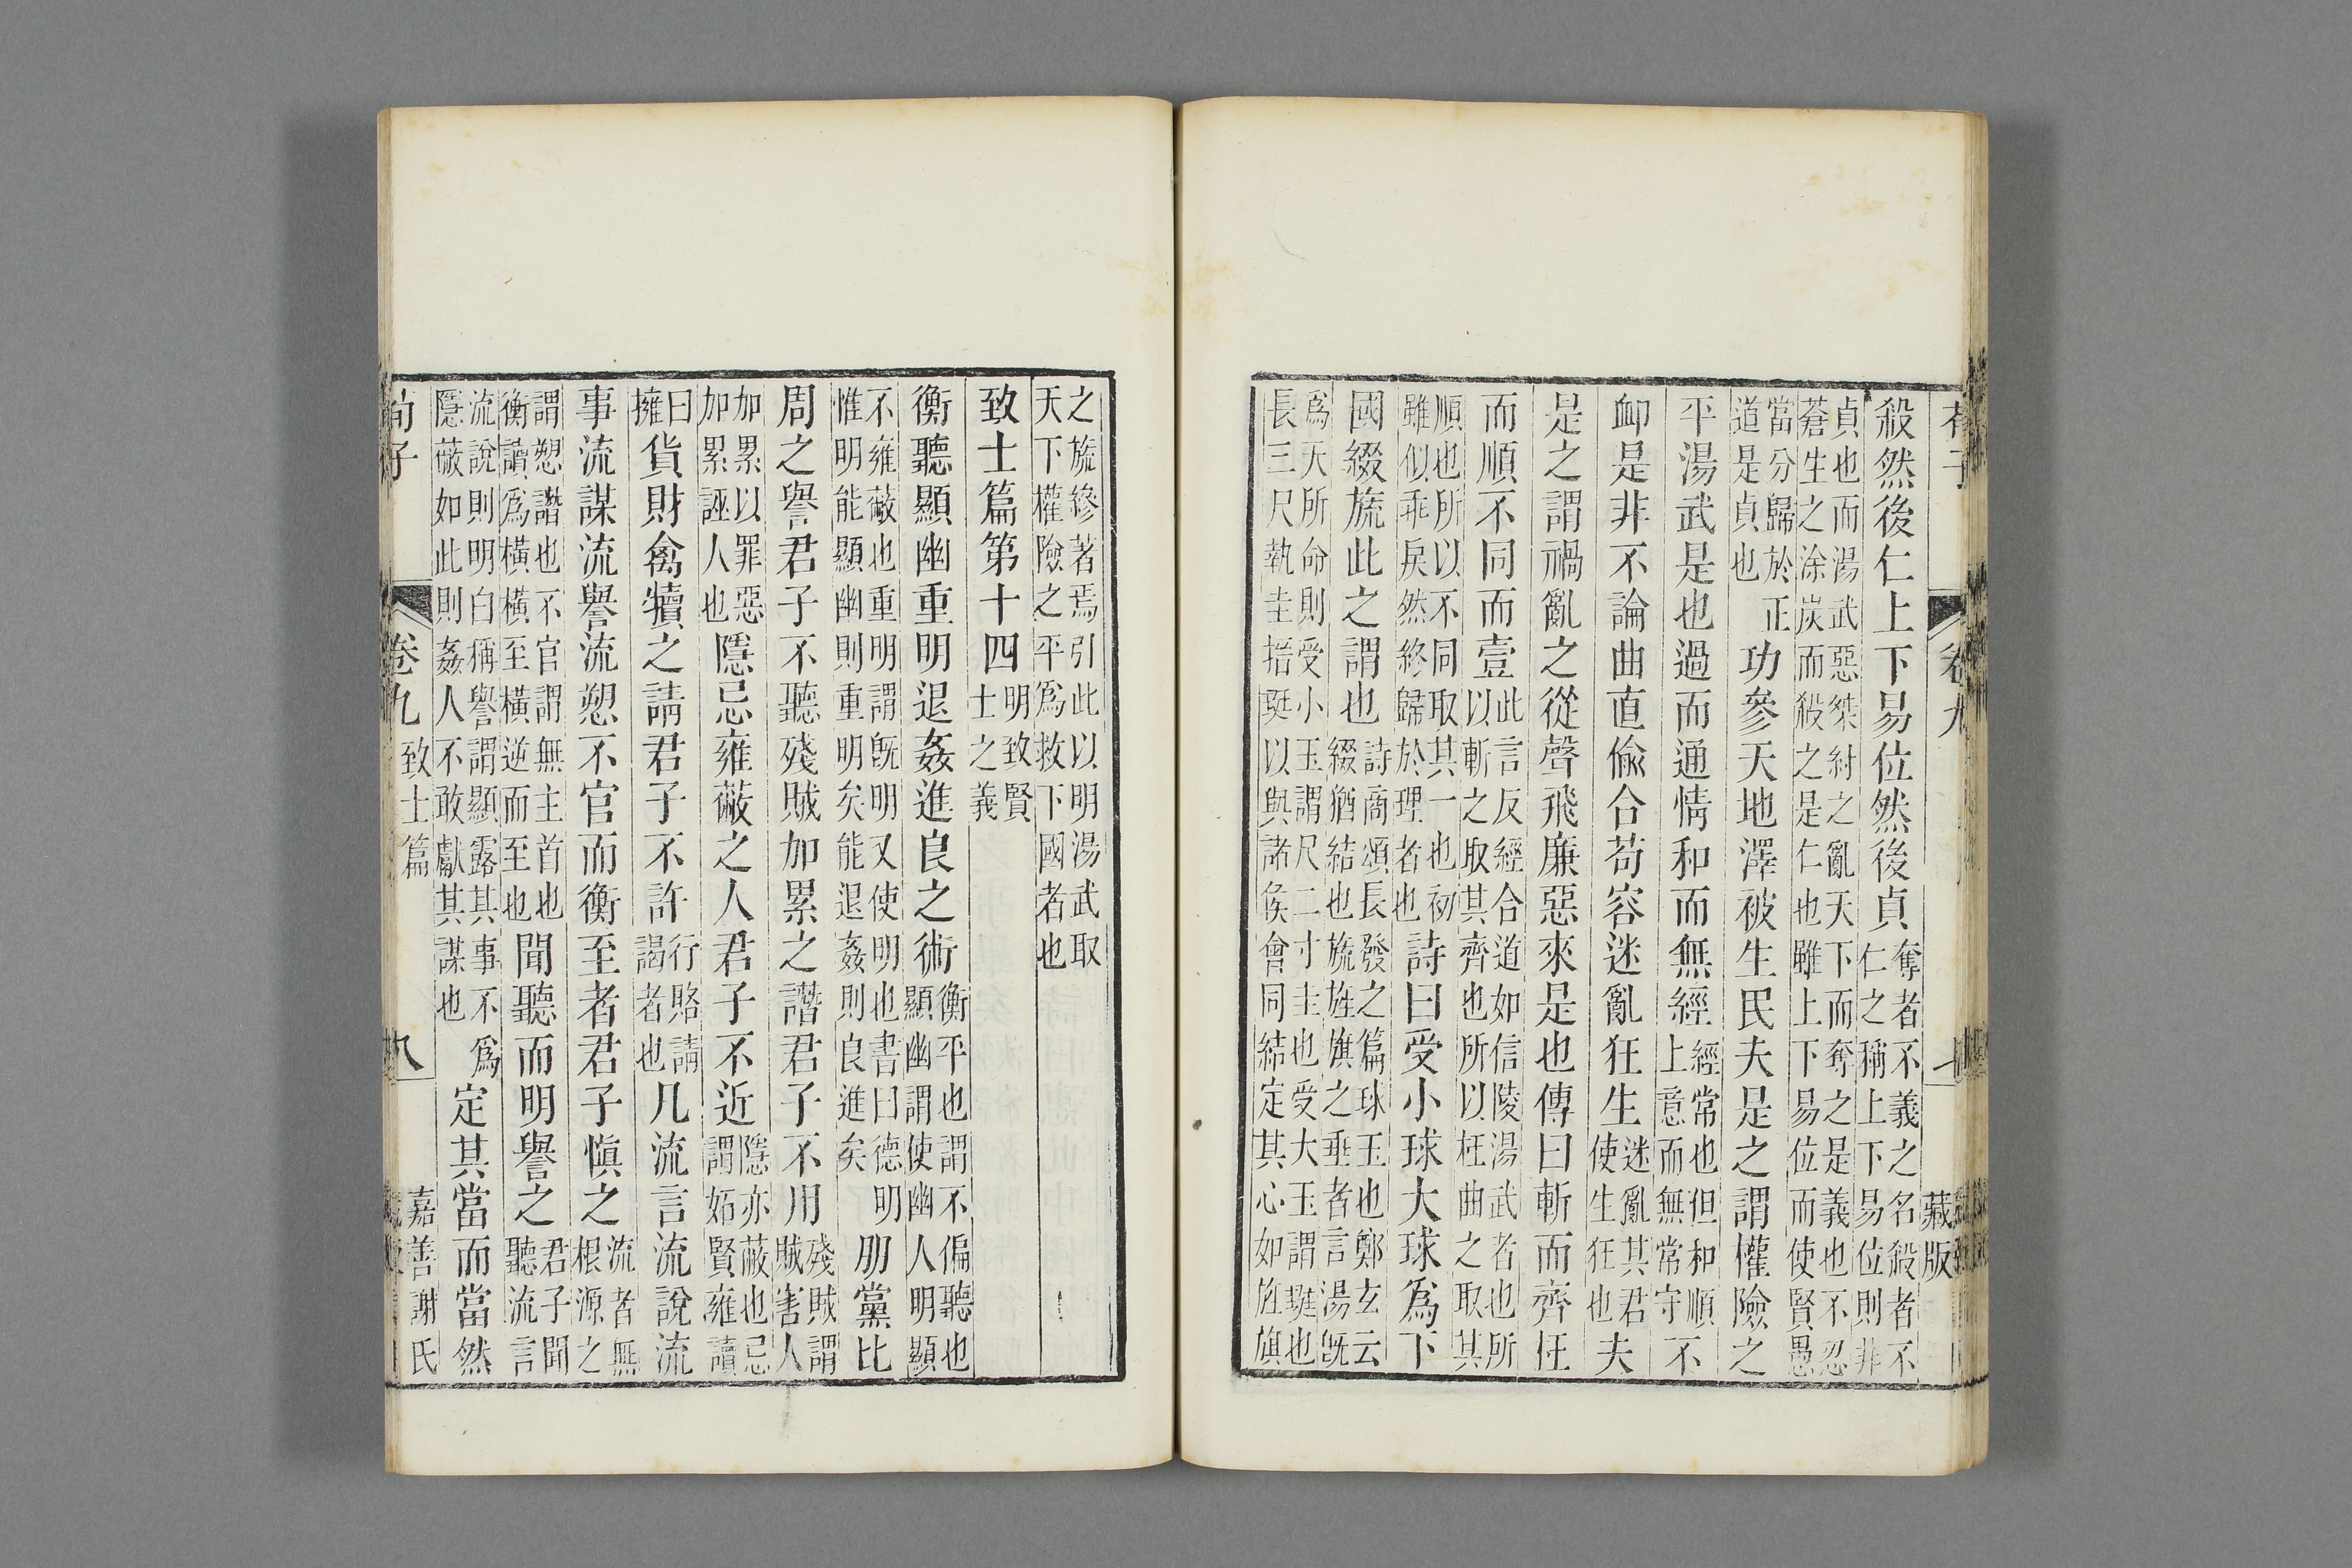 荀子 卷九 藏版
殺然後仁上下易位然後貞
奪者不義之名殺者不
仁之稱上下易位則非
貞也而湯武惡桀紂之亂天下而奪之是義也不忍
蒼生之涂炭而殺之是仁也雖上下易位而使賢愚
當分歸於正
道是貞也
功參天地澤被生民夫是之謂權險之
平湯武是也過而通情和而無經
經常也但和順
上意而無常守
不
卹是非不論曲直偸合苟容迷亂狂生
迷亂其君
使生狂也
夫
是之謂禍亂之從聲飛廉惡來是也傳曰斬而齊枉
而順不同而壹
此言反經合道如信陵湯武者也所
以斬之取其齊也所以枉曲之取其
順也所以不同取其一也初
雖似乖戾然終歸於理者也
詩曰受小球大球爲下
國綴旒此之謂也
詩商頌長發之篇球玉也鄭玄云
綴猶結也旒旌旗之垂者言湯旣
爲天所命則受小玉謂尺二寸圭也受大玉謂珽也
長三尺執圭搢珽以與諸侯會同結定其心如旌旗
之旒縿著焉引此以明湯武取
天下權險之平爲救下國者也
致士篇第十四
明致賢
士之義
衡聽顯幽重明退姦進良之術
衡平也謂不偏聽也
顯幽謂使幽人明顯
不雍蔽也重明謂旣明又使明也書曰德明
惟明能顯幽則重明矣能退姦則良進矣
朋黨比
周之譽君子不聽殘賊加累之譖君子不用
殘賊謂
賊害人
加累以罪惡
加累誣人也
隱忌雍蔽之人君子不近
隱亦蔽也忌
謂妬賢雍讀
曰
擁
貨財禽犢之請君子不許
行賂請
謁者也
凡流言流說流
事流謀流譽流愬不官而衡至者君子愼之
流者無
根源之
謂愬譖也不官謂無主首也
衡讀爲橫橫至橫逆而至也
聞聽而明譽之
君子聞
聽流言
流說則明白稱譽謂顯露其事不爲
隱蔽如此則姦人不敢獻其謀也
定其當而當然
荀子 卷九 致士篇 九 嘉善謝氏